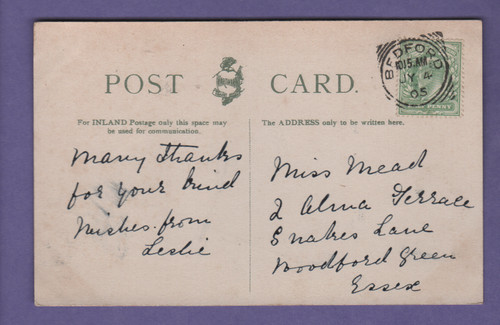 POST CARD.
BEDFORD
10.15 AM
JY 4
05
PENNY
For INLAND Postage only this space may
be used for communication.
The ADDRESS only to be written here.
Many thanks
for your kind
wishes. from
Leslie
Miss Mead
2 Alma Terrace
Snakes Lane
Woodford Green
Essex